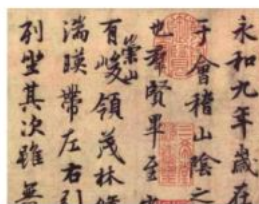 永和九年歲在
于會稽山陰之
也羣賢畢至
崇山
有峻領茂林
湍暎帶左右引
列坐其次雖無